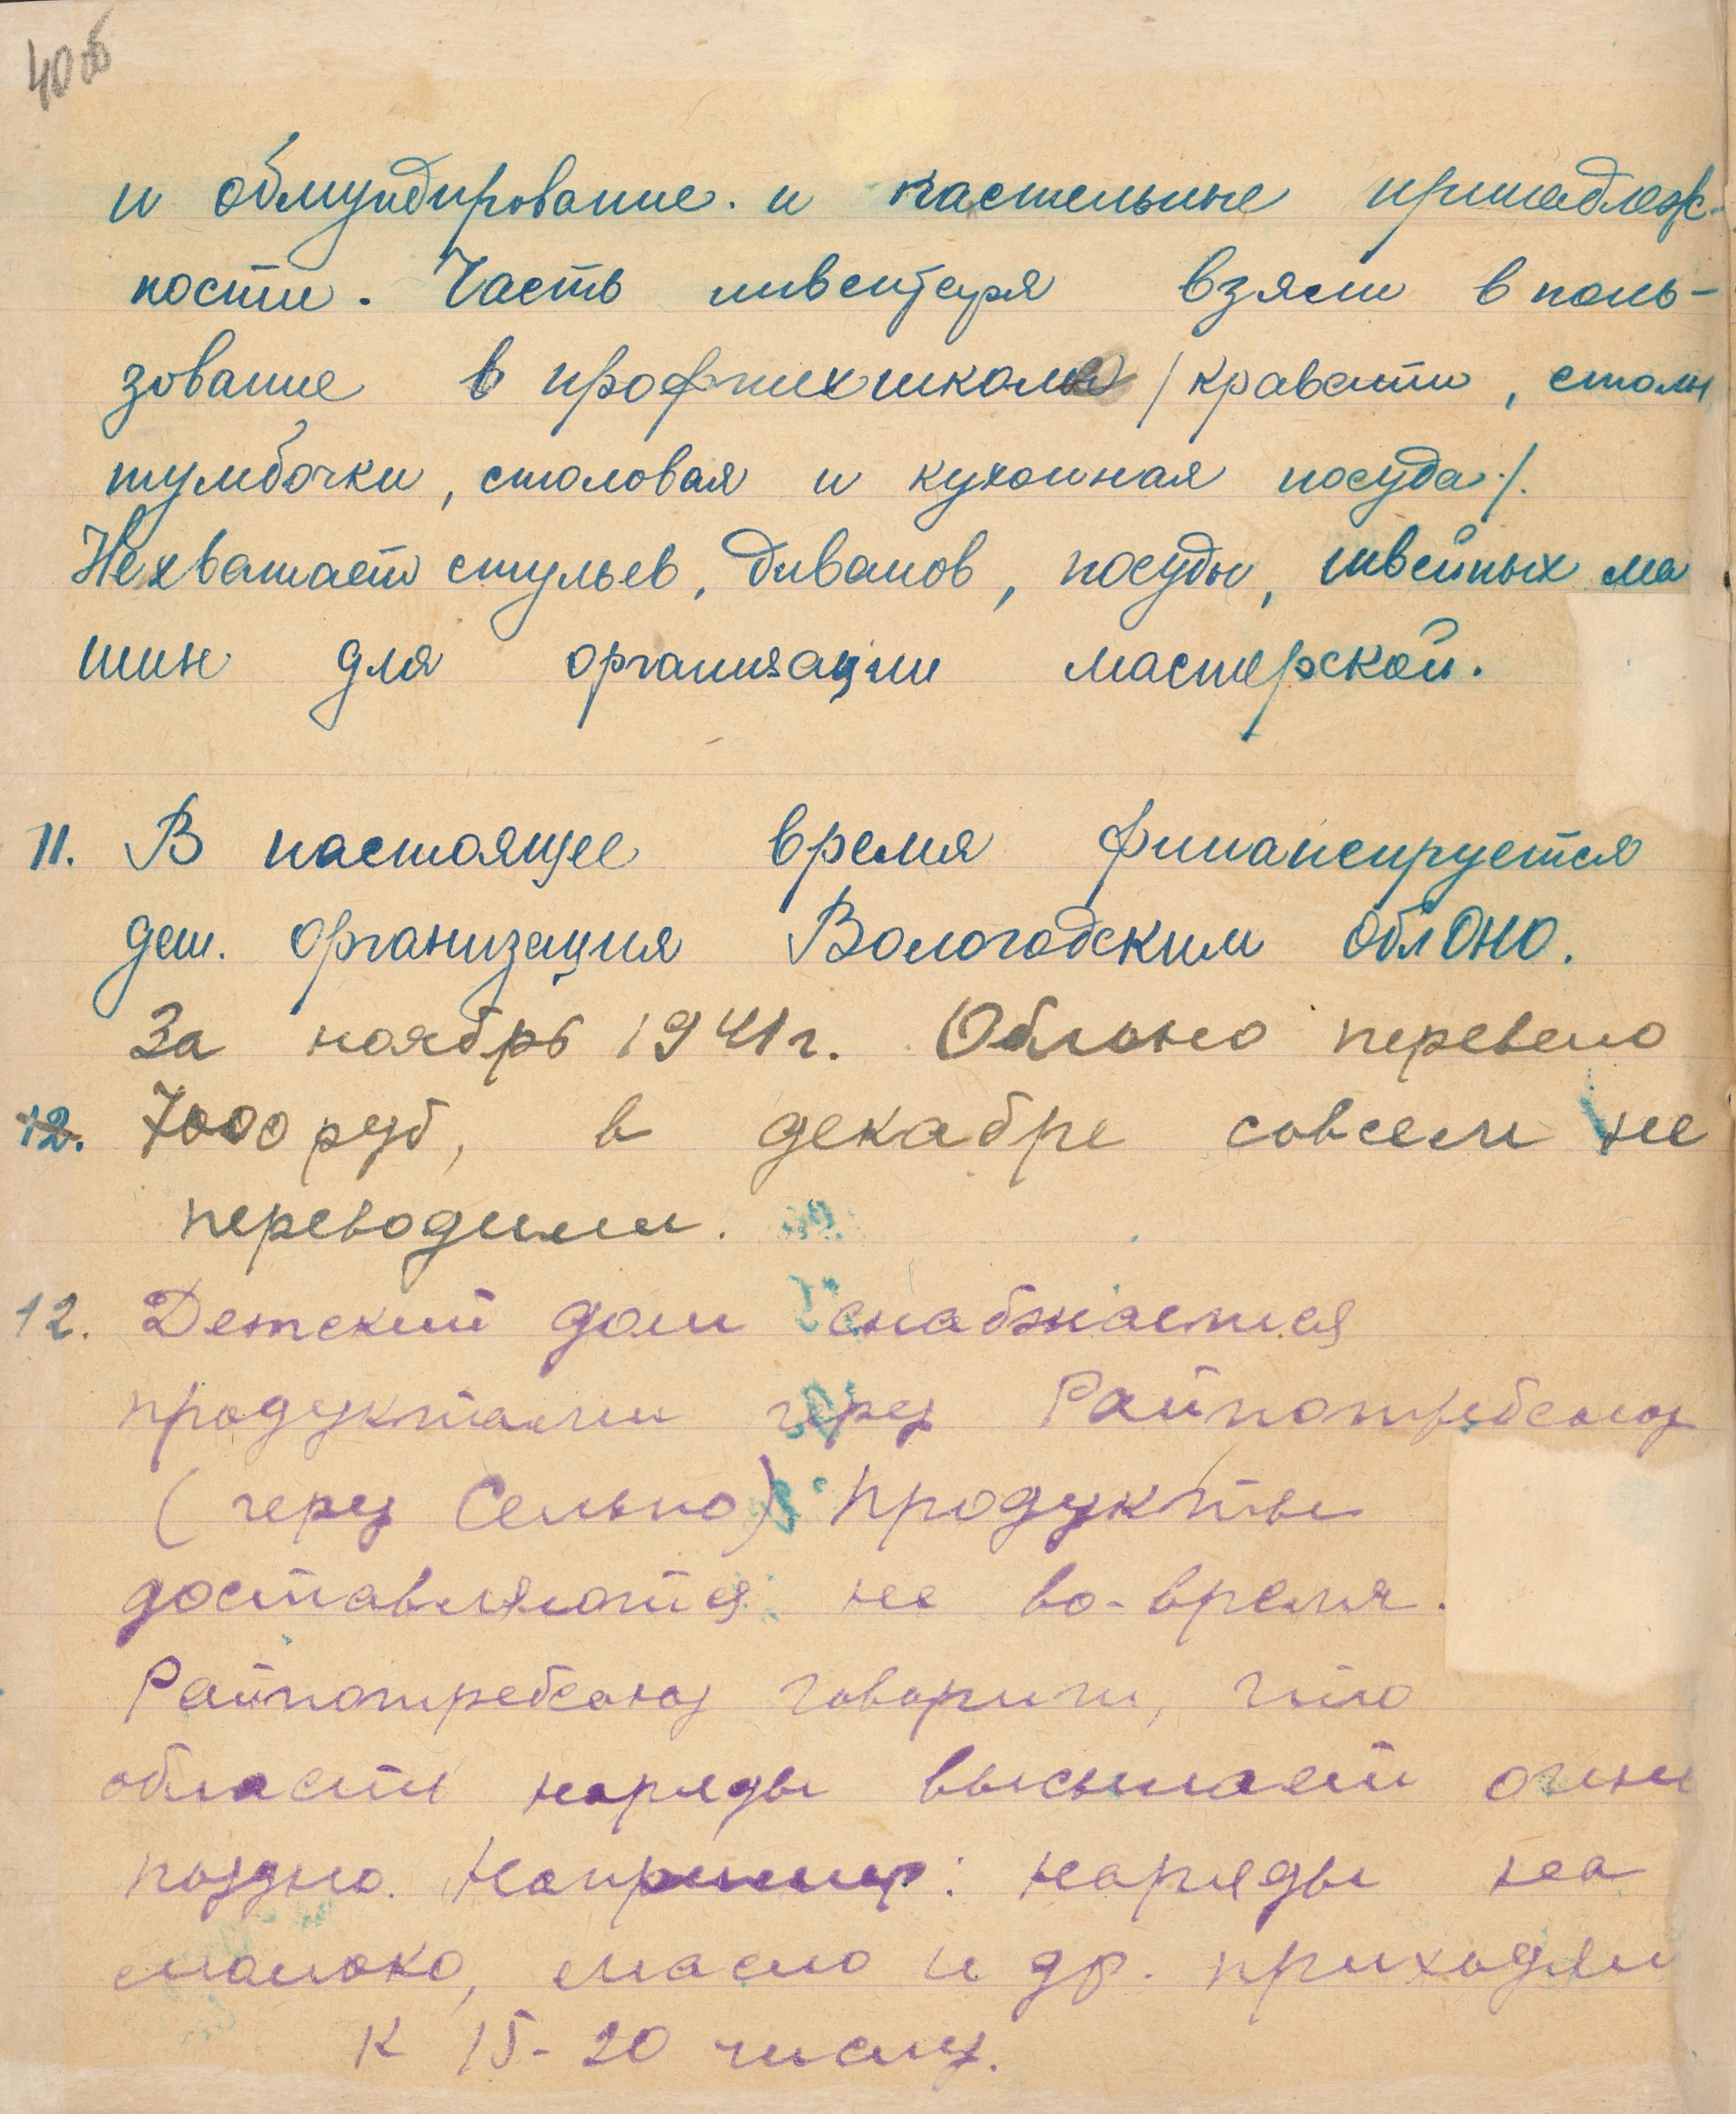 40об
и обмундирование. и пастельные принадлеж-
ности. Часть инвентаря взяли в поль-
зование в профтехшколы /кравати, столы
тумбочки, столовая и кухонная посуда./.
Нехватает стульев, диванов, посуды, швейных ма
шин для организации мастерской.
11. В настоящее время финансируется
дет. организация Вологодским облОНО.
За ноябрь 1941 г. Облоно перевело
12. 7000 руб, в декабре совсем не
переводили.
12. Детский дом снабжается
продуктами через Райпотребсоюз
(через Сельпо). Продукты
доставляются не во-время.
Райпотребсоюз говорит, что
область наряды высылает очень
поздно. Например: наряды на
молоко, масло и др. приходят
к 15-20 числу.